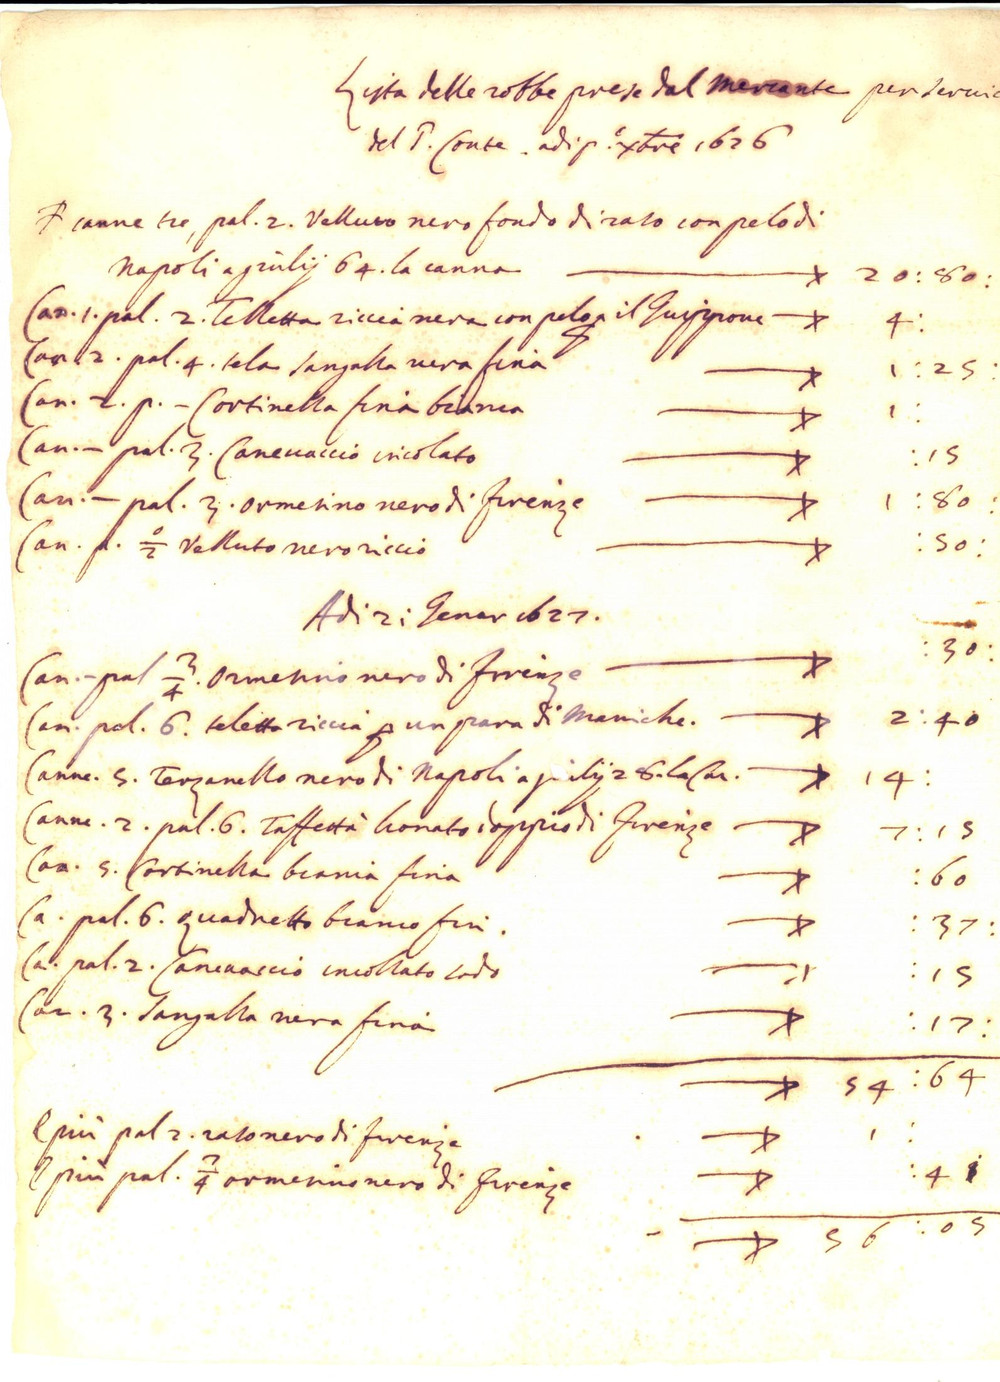 Lista delle robbe prese dal Mercante per servic
del S. Conte . adi p.o xbre 1626
P canne tre, pal. 2. Velluto nero fondo di raso con pelo di
Napoli a giulij 64. la canna 20:80:
Can. 1. pal. 2. Telletta riccia nera con pelo p il Guippone 4:
Can 2. pal. 4. tela sangalla nera fina 1:25:
Can. 2. p. - Cortinella fina bianca 1:
Can. - pal. 3. Caneuaccio incolato :15
Can. - pal. 3. ormesino nero di firenze 1:80:
Can. p. 0/2 Velluto nero riccio :50:
Adi 21 Genar 1627.
Can. - pal 3/4. ormesino nero di firenze :30:
Can. pal. 6. teletta riccia p un para di Maniche. 2:40
Canne. 5. Terzanello nero di Napoli a giulij 28. la Can. 14:
Canne. 2. pal. 6. Taffettà lionato doppio di firenze 7:15
Can. 5. Cortinella bianca fina :60
Ca. pal. 6. quadretto bianco fin. :37:
Ca. pal. 2. Caneuaccio incollato sodo :15
Can. 3. sangalla nera fina :17:
54:64
E più pal 2. raso nero di firenze 1:
E più pal. 3/4 ormesino nero di firenze :41
56:05